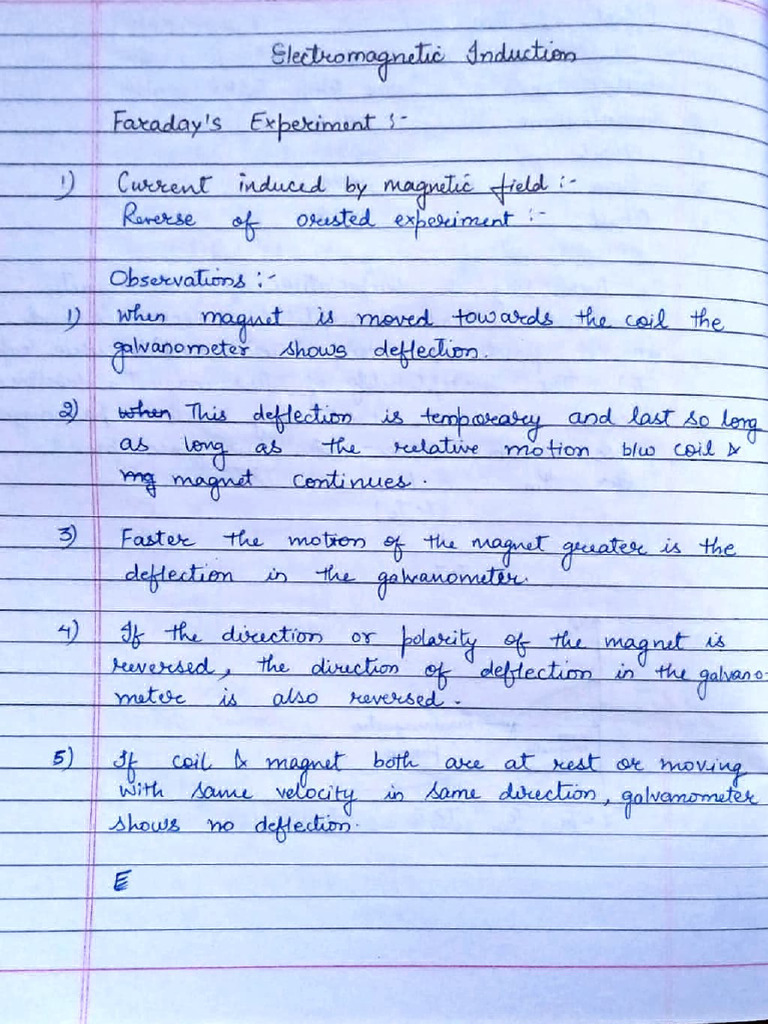 Electromagnetic Induction
Faraday's Experiment :-
1) Current induced by magnetic field :-
Reverse of orested experiment :-
Observations :-
1) when magnet is moved towards the coil the
galvanometer shows deflection.
2) when This deflection is temporary and last so long
as long as the relative motion b/w coil &
mg magnet continues.
3) Faster the motion of the magnet greater is the
deflection in the galvanometer.
4) If the direction or polarity of the magnet is
reversed, the direction of deflection in the galvano-
meter is also reversed.
5) If coil & magnet both are at rest or moving
with same velocity in same direction, galvanometer
shows no deflection.
E